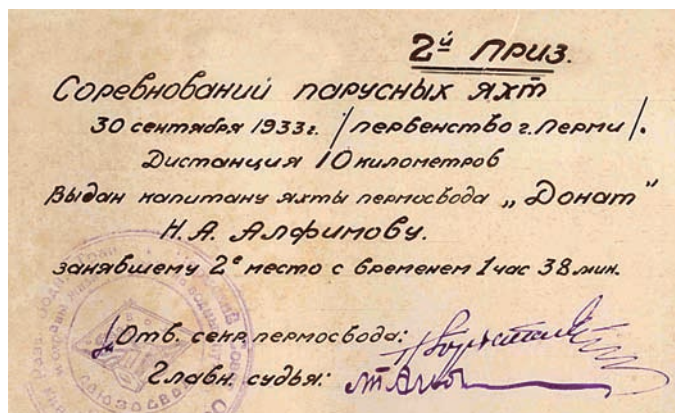 2й Приз.
Соревнований парусных яхт
30 сентября 1933г. /первенство г. Перми/.
Дистанция 10 километров
Выдан капитану яхты пермосвода „Донат“
Н. А. Алфимову.
занявшему 2е место с временем 1 час 38 мин.
/Отв. секр. пермосвода:
Главн. судья:
СОЮЗОСВОД